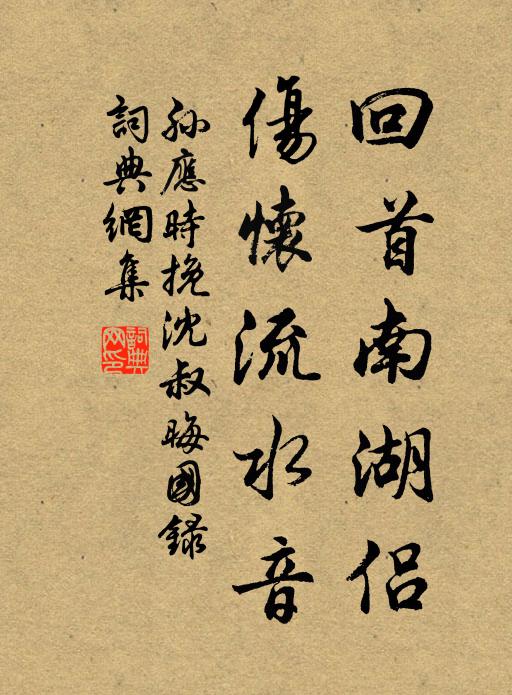 回首南湖侣
傷懷流水音
孙應時挽沈叔晦國錄
詞典網集
詞典网印